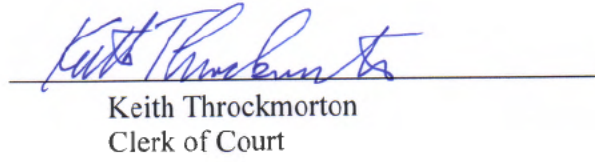 Keith Throckmorton
Keith Throckmorton
Clerk of Court